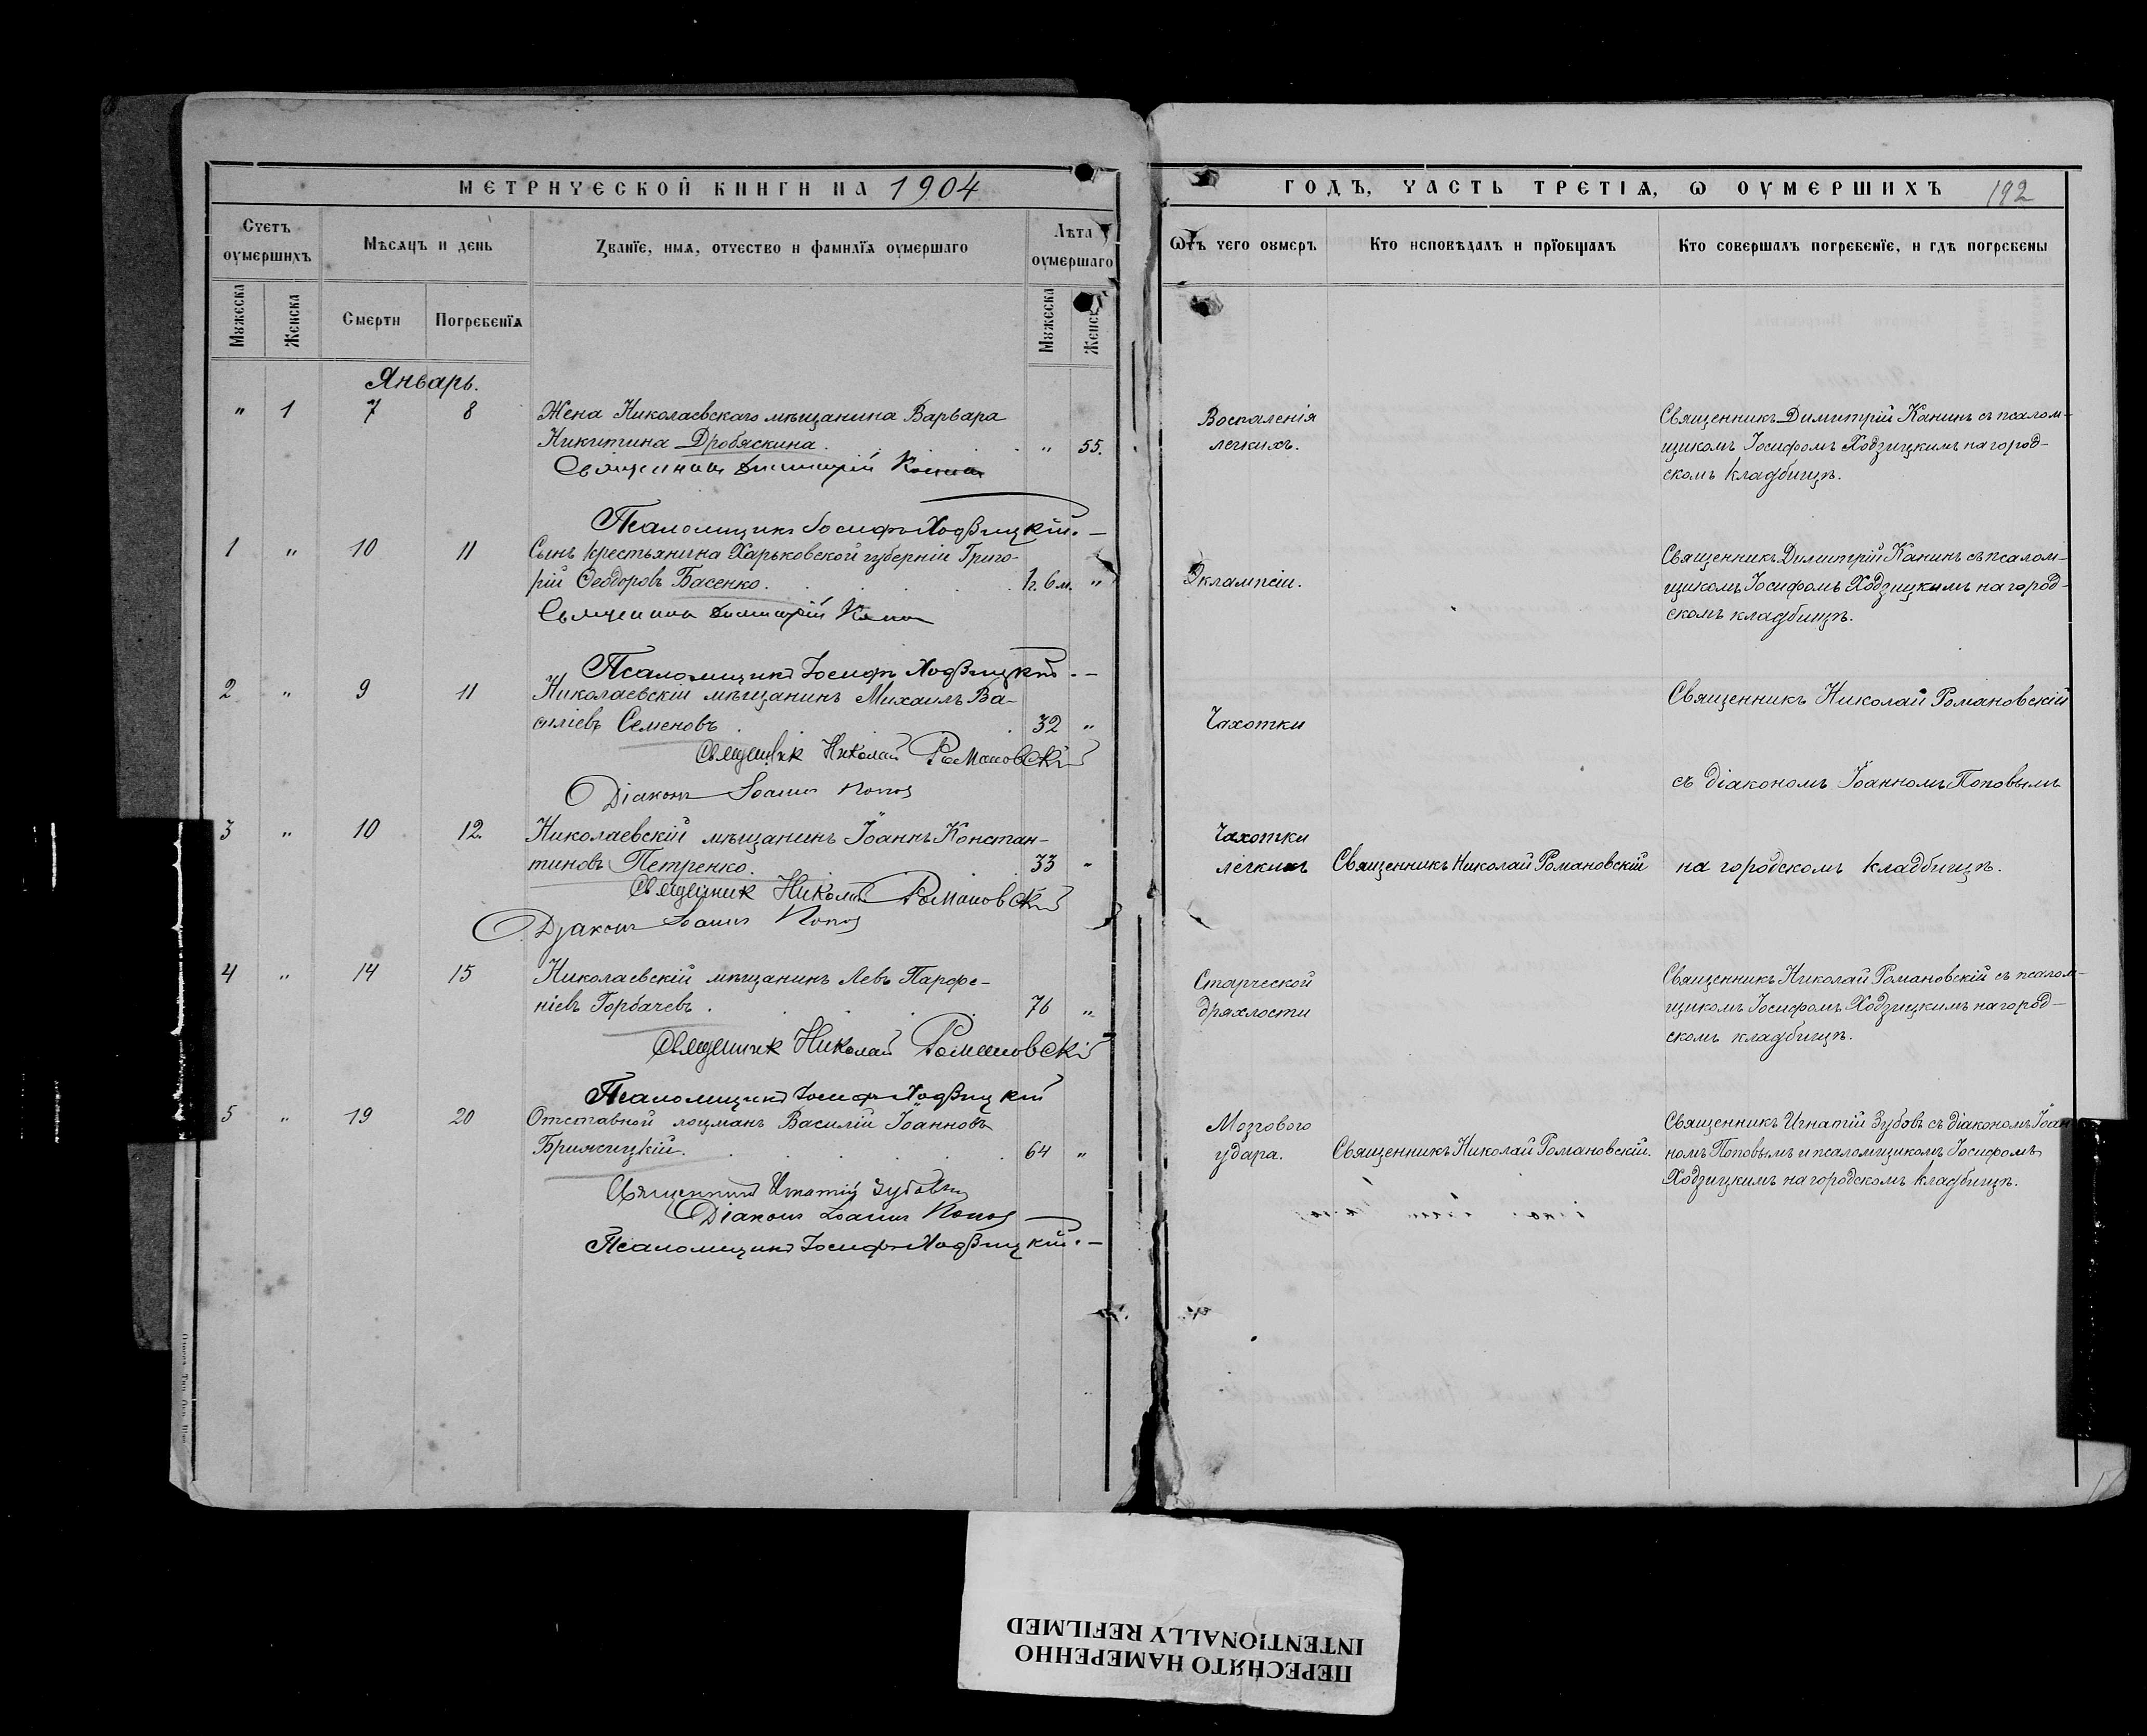 МЕТРИЧЕСКОЙ КНИГИ НА 1904
Счетъ оумершихъ
Мѣсяцъ и день
Званїе, имя, отчество и фамилїя оумершаго
Лѣта оумершаго
Мꙋжеска
Женска
Смерти
Погребенїя
Мꙋжеска
Женска
Январь.
" 1 7 8 Жена Николаевскаго мѣщанина Варвара
Никитина Дробяскина. " 55.
Священникъ Димитрій Канинъ
Псаломщикъ Іосифъ Ходзицкій.—
1 " 10 11 Сынъ крестьянина Харьковской губерніи Григо-
рій Ѳеодоровъ Басенко. 1г. 6м. "
Священникъ Димитрій Канинъ
Псаломщикъ Іосифъ Ходзицкій.—
2 " 9 11 Николаевскій мѣщанинъ Михаилъ Ва-
силіевъ Семеновъ 32 "
Священникъ Николай Романовскій
Діаконъ Іоаннъ Поповъ
3 " 10 12 Николаевскій мѣщанинъ Іоаннъ Констан-
тиновъ Петренко. 33 "
Священникъ Николай Романовскій
Діаконъ Іоаннъ Поповъ
4 " 14 15 Николаевскій мѣщанинъ Левъ Парѳе-
ніевъ Горбачевъ. 76 "
Священникъ Николай Романовскій
Псаломщикъ Іосифъ Ходзицкій
5 " 19 20 Отставной лоцманъ Василій Іоанновъ
Бримсицкій. 64 "
Священникъ Игнатій Зубовъ
Діаконъ Іоаннъ Поповъ
Псаломщикъ Іосифъ Ходзицкій.—
ГОДЪ, ЧАСТЬ ТРЕТІЯ, Ѡ ОУМЕРШИХЪ 192
Ѿтъ чего оумеръ
Кто исповѣдалъ и прїобщалъ
Кто совершалъ погребенїе, и гдѣ погребены
Воспаленія
легкихъ.
Священникъ Димитрій Канинъ съ псалом-
щикомъ Іосифомъ Ходзицкимъ на город-
скомъ кладбищѣ.
Эклампсіи.
Священникъ Димитрій Канинъ съ псалом-
щикомъ Іосифомъ Ходзицкимъ на город-
скомъ кладбищѣ.
Чахотки
Священникъ Николай Романовскій
съ діакономъ Іоанномъ Поповымъ
Чахотки
легкихъ Священникъ Николай Романовскій на городскомъ кладбищѣ.
Старческой
дряхлости
Священникъ Николай Романовскій съ псалом-
щикомъ Іосифомъ Ходзицкимъ на город-
скомъ кладбищѣ.
Мозгового
удара. Священникъ Николай Романовскій.
Священникъ Игнатій Зубовъ съ діакономъ Іоан
номъ Поповымъ и псаломщикомъ Іосифомъ
Ходзицкимъ на городскомъ кладбищѣ.
ПЕРЕСНЯТО НАМЕРЕННО
INTENTIONALLY REFILMED